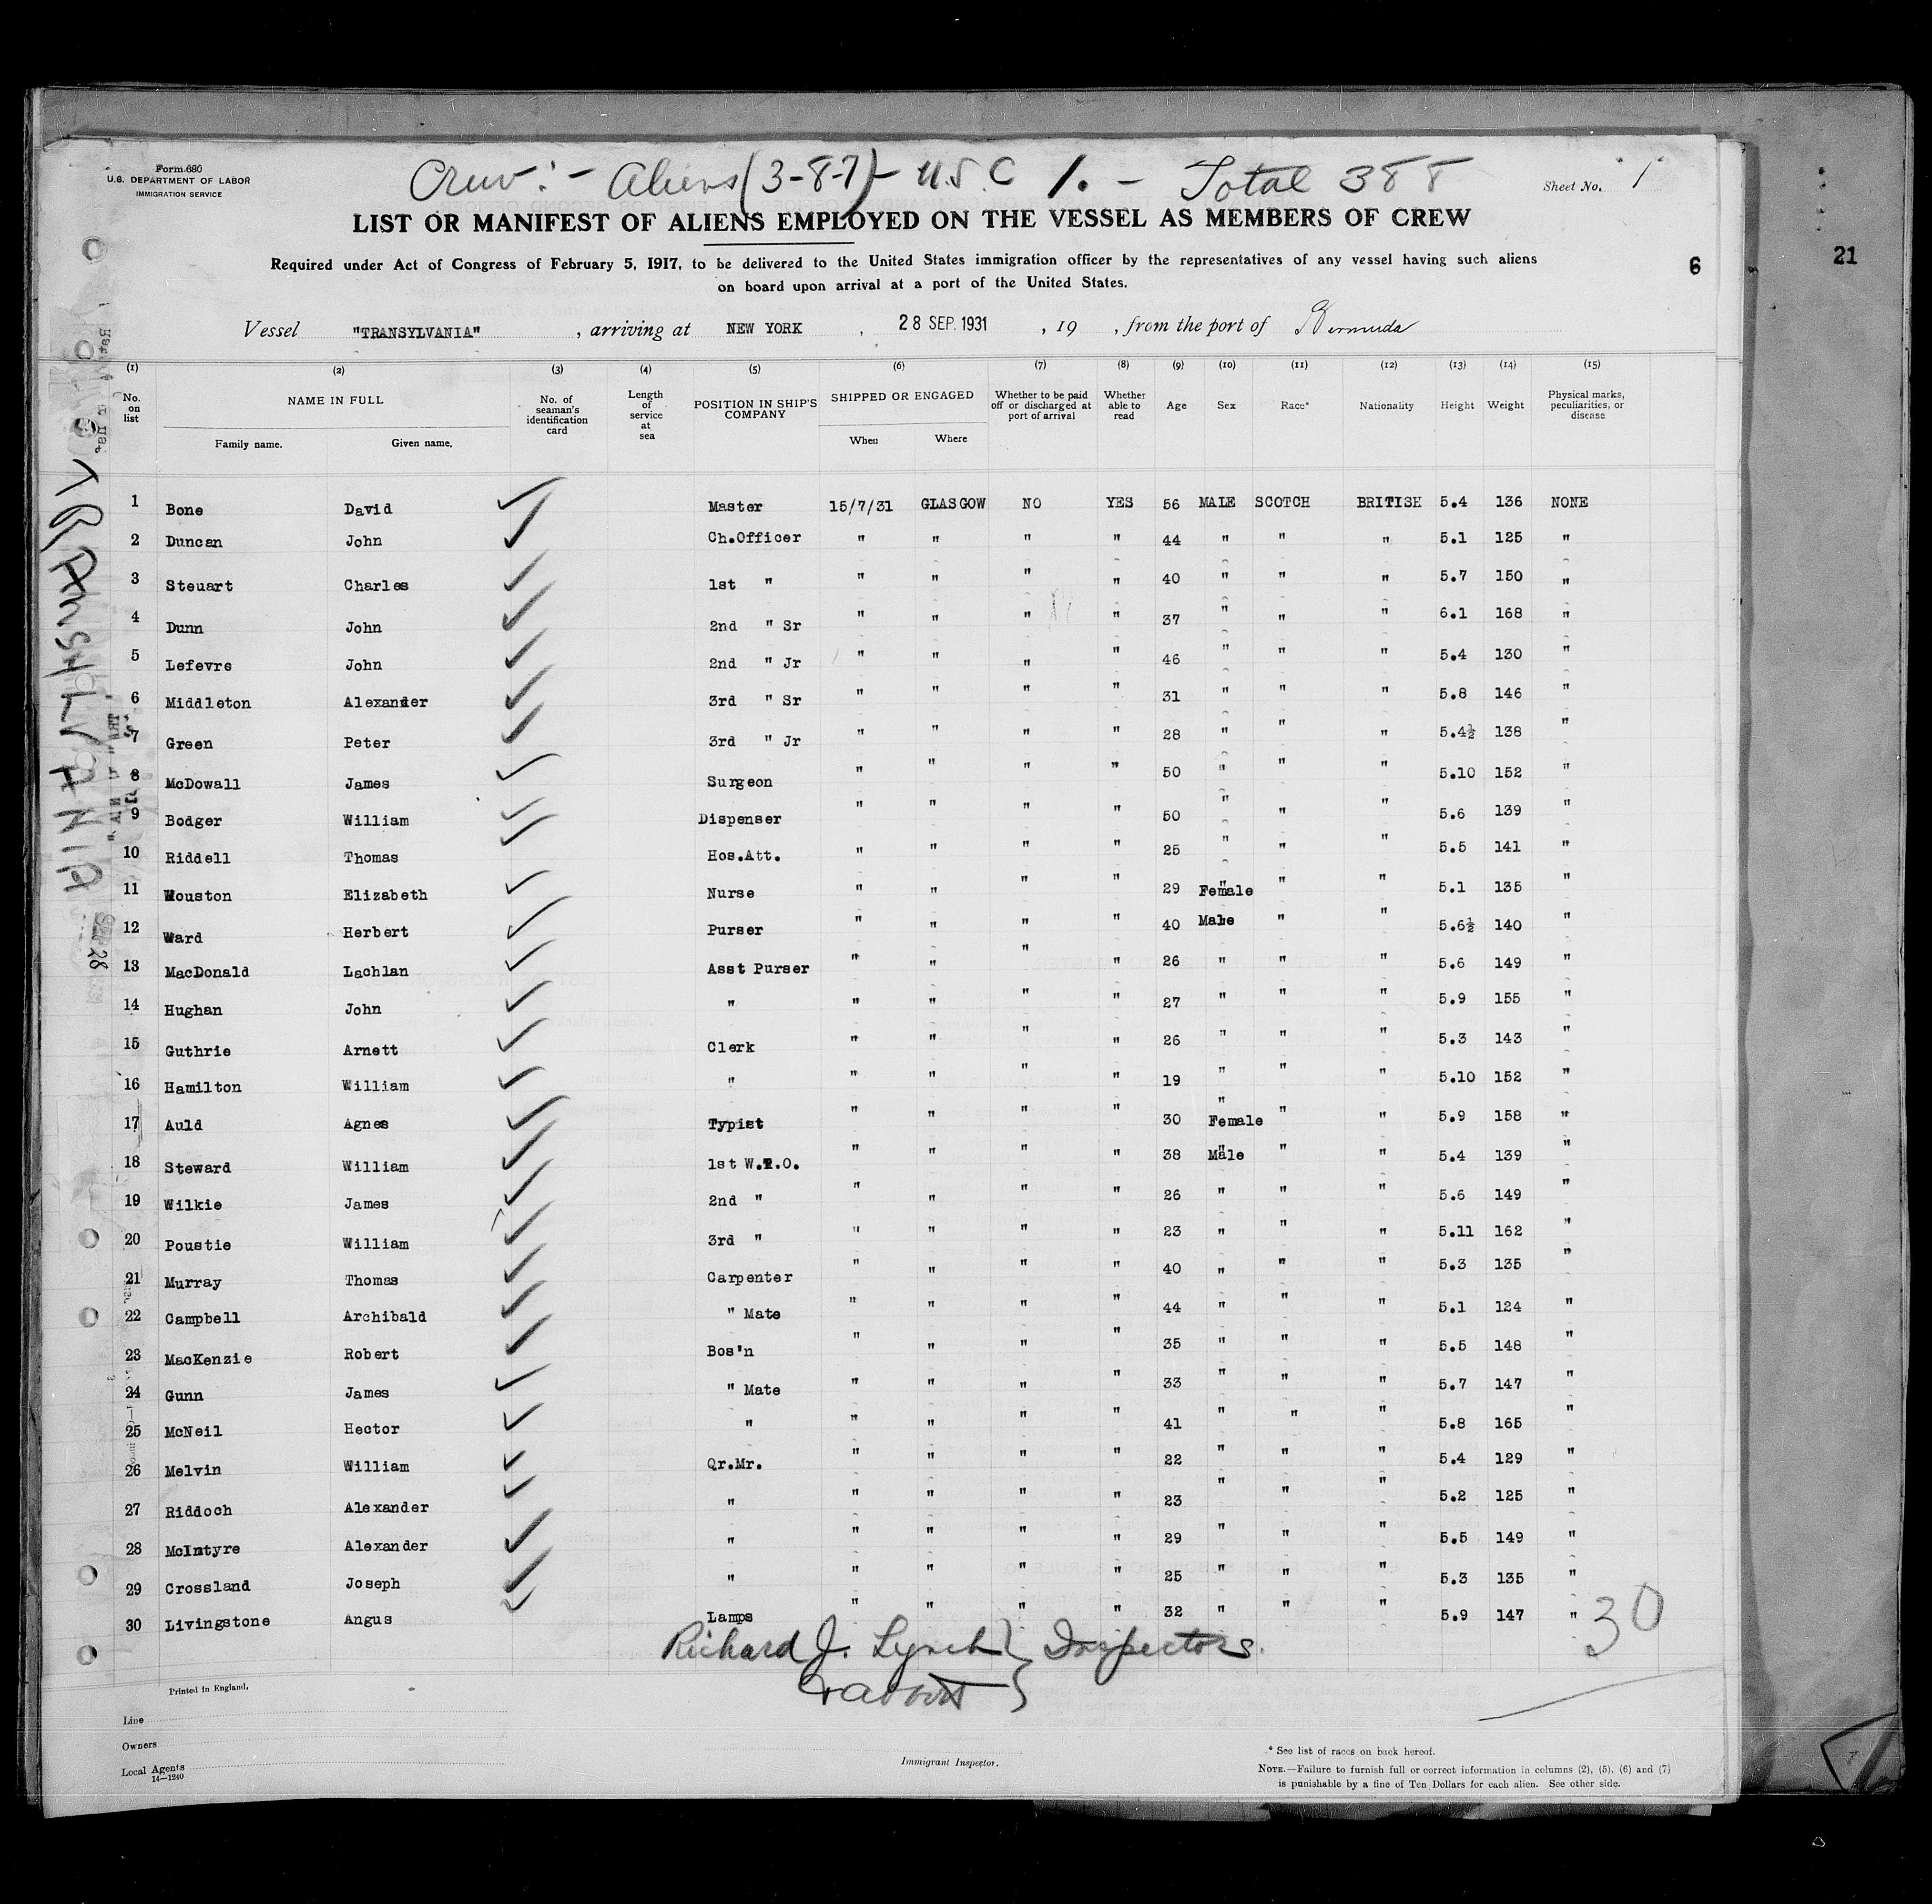 Form 680
U.S. DEPARTMENT OF LABOR
IMMIGRATION SERVICE
Crew:- Aliens (3-8-7)- U.S.C 1. - Total 388
Sheet No. 1
LIST OR MANIFEST OF ALIENS EMPLOYED ON THE VESSEL AS MEMBERS OF CREW
Required under Act of Congress of February 5, 1917, to be delivered to the United States immigration officer by the representatives of any vessel having such aliens
on board upon arrival at a port of the United States.
6
21
Vessel "TRANSYLVANIA", arriving at NEW YORK, 28 SEP. 1931, 19 , from the port of Bermuda
(1) (2) (3) (4) (5) (6) (7) (8) (9) (10) (11) (12) (13) (14) (15)
No. on list NAME IN FULL Family name. Given name. No. of seaman's identification card Length of service at sea POSITION IN SHIP'S COMPANY SHIPPED OR ENGAGED When Where Whether to be paid off or discharged at port of arrival Whether able to read Age Sex Race* Nationality Height Weight Physical marks, peculiarities, or disease
1 Bone David Master 15/7/31 GLASGOW NO YES 56 MALE SCOTCH BRITISH 5.4 136 NONE
2 Duncan John Ch.Officer " " " " 44 " " " 5.1 125 "
3 Steuart Charles 1st " " " " " 40 " " " 5.7 150 "
4 Dunn John 2nd " Sr " " " " 37 " " " 6.1 168 "
5 Lefevre John 2nd " Jr " " " " 46 " " " 5.4 130 "
6 Middleton Alexander 3rd " Sr " " " " 31 " " " 5.8 146 "
7 Green Peter 3rd " Jr " " " " 28 " " " 5.4½ 138 "
8 McDowall James Surgeon " " " " 50 " " " 5.10 152 "
9 Bodger William Dispenser " " " " 50 " " " 5.6 139 "
10 Riddell Thomas Hos.Att. " " " " 25 " " " 5.5 141 "
11 Houston Elizabeth Nurse " " " " 29 Female " " 5.1 135 "
12 Ward Herbert Purser " " " " 40 Male " " 5.6½ 140 "
13 MacDonald Lachlan Asst Purser " " " " 26 " " " 5.6 149 "
14 Hughan John " " " " " 27 " " " 5.9 155 "
15 Guthrie Arnett Clerk " " " " 26 " " " 5.3 143 "
16 Hamilton William " " " " " 19 " " " 5.10 152 "
17 Auld Agnes Typist " " " " 30 Female " " 5.9 158 "
18 Steward William 1st W.T.O. " " " " 38 Male " " 5.4 139 "
19 Wilkie James 2nd " " " " " 26 " " " 5.6 149 "
20 Poustie William 3rd " " " " " 23 " " " 5.11 162 "
21 Murray Thomas Carpenter " " " " 40 " " " 5.3 135 "
22 Campbell Archibald " Mate " " " " 44 " " " 5.1 124 "
23 MacKenzie Robert Bos'n " " " " 35 " " " 5.5 148 "
24 Gunn James " Mate " " " " 33 " " " 5.7 147 "
25 McNeil Hector " " " " " 41 " " " 5.8 165 "
26 Melvin William Qr.Mr. " " " " 22 " " " 5.4 129 "
27 Riddoch Alexander " " " " " 23 " " " 5.2 125 "
28 McIntyre Alexander " " " " " 29 " " " 5.5 149 "
29 Crossland Joseph " " " " " 25 " " " 5.3 135 "
30 Livingstone Angus Lamps " " " " 32 " " " 5.9 147 "
30
Richard J. Lynch } Inspectors.
TRANSYLVANIA
SEP 28
Printed in England.
Line
Owners
Local Agents
14-1240
Immigrant Inspector.
* See list of races on back hereof.
NOTE.—Failure to furnish full or correct information in columns (2), (5), (6) and (7)
is punishable by a fine of Ten Dollars for each alien. See other side.